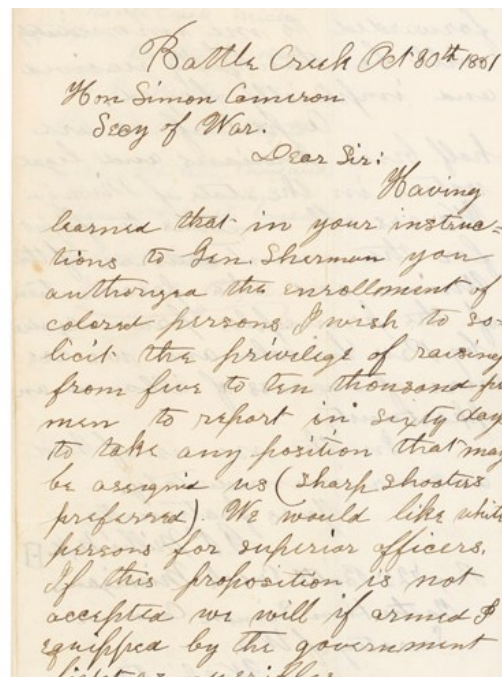 Battle Creek Oct 30th 1861
Hon Simon Cameron
Secy of War.
Dear Sir:
Having
learned that in your instruc=
tions to Gen. Sherman you
authorized the enrollment of
colored persons I wish to so-
licit the privilege of raising
from five to ten thousand
men to report in sixty day
to take any position that may
be assigned us (sharp shooters
preferred). We would like white
persons for superior officers.
If this proposition is not
accepted we will if armed &
equipped by the government